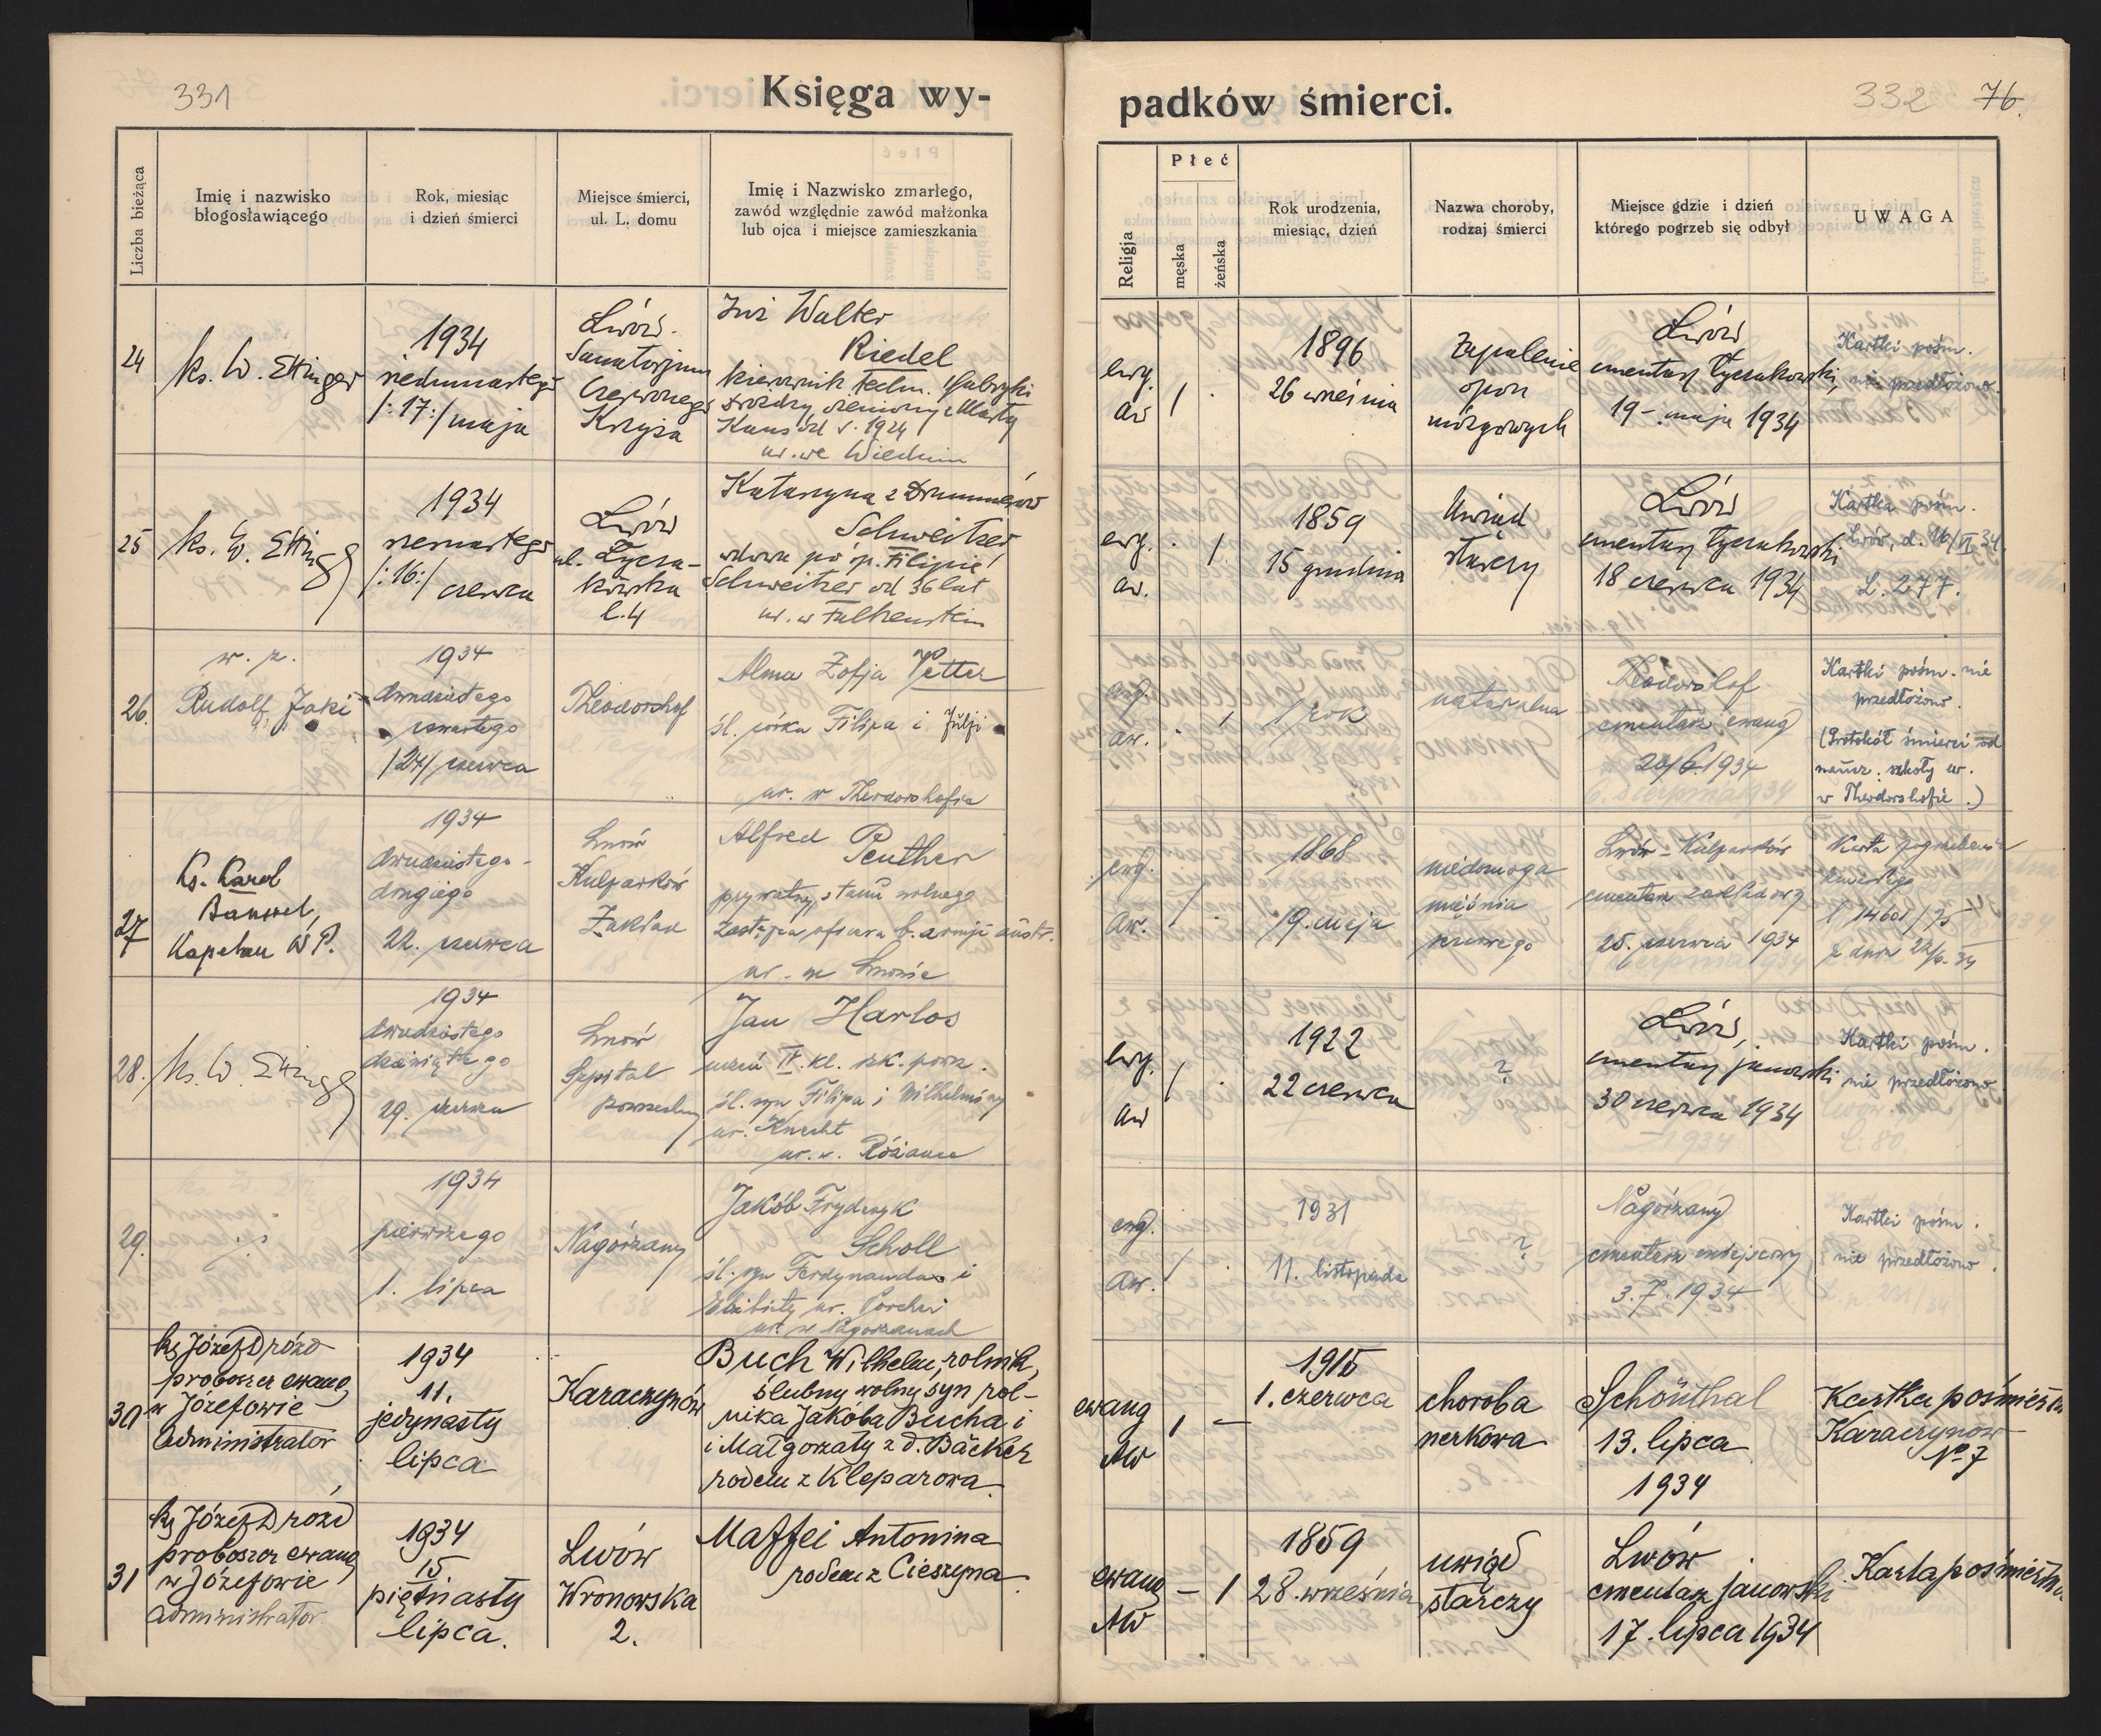 331
Księga wy-
padków śmierci.
332 76.
Liczba bieżąca
Imię i nazwisko
błogosławiącego
Rok, miesiąc
i dzień śmierci
Miejsce śmierci,
ul. L. domu
Imię i Nazwisko zmarłego,
zawód względnie zawód małżonka
lub ojca i miejsce zamieszkania
Religja
Płeć
męska
żeńska
Rok urodzenia,
miesiąc, dzień
Nazwa choroby,
rodzaj śmierci
Miejsce gdzie i dzień
którego pogrzeb się odbył
UWAGA
24
ks. W. Ettinger
1934
siedmnastego
/:17:/ maja
Lwów
Sanatorjum
Czerwonego
Krzyża
Inż Walter
Riedel
kierownik techn. fabryki
drożdży, żeniony z Martą
Kuns od r. 1924
ur. we Wiedniu
ewg.
aw
/ .
1896
26 wreśnia
Zapalenie
opon
mózgowych
Lwów
cmentarz Łyczakowski,
19 - maja 1934
Kartki pośm.
nie przedłożono.
25
ks. W. Etting
1934
szesnastego
/:16:/ czerwca
Lwów
ul. Łycza-
kowska
l. 4
Katarzyna z Drummów
Schweitzer
wdowa po śp. Filipie
Schweitzer od 36 lat
ur. w Falkenstein
ewg.
aw.
. /.
1859
15 grudnia
Uwiąd
starczy
Lwów
cmentarz Łyczakowski
18 czerwca 1934
Kartka pośm.
Lwów, d. 16/VI 34.
L. 277.
26.
w. z.
Rudolf Jaki
1934
dwudziestego
czwartego
/24/ czerwca
Theodorshof
Alma Zofja Vetter
śl. córka Filipa i Julji
ur. w Theodorshofie
ewg.
aw.
. /
1 rok
naturalna
Theodorshof
cmentarz ewang
26/6 1934
Kartki pośm. nie
przedłożono.
(Protokół śmierci od
naucz. szkoły ew.
w Theodorshofie.)
27
Ks. Karol
Banszel,
Kapelan W P.
1934
dwudziestego -
drugiego
22. czerwca
Lwów
Kulparków
Zakład
Alfred Reuther
prywatny, stanu wolnego
zastępca oficera b. armji austr.
ur. we Lwowie
ewg.
aw.
/ .
1868
19. maja
niedomoga
mięśnia
sercowego
Lwów - Kulparków
cmentarz zakładowy
25. czerwca 1934
Karta pogrzebowa
z dnia 22/6. 34
28.
ks. W. Etting
1934
dwudziestego
dziewiątego
29. czerwca
Lwów
Szpital
powszechny
Jan Harlos
uczeń IV. kl. szk. powsz.
śl. syn Filipa i Wilhelminy
ur. Knecht
ur. w. Różance
ewg.
aw
/ .
1922
22 czerwca
?
Lwów,
cmentarz janowski
30 czerwca 1934
Kartki pośm.
nie przedłożono
29.
1934
pierwszego
1. lipca
Nagórzany
Jakób Fryderyk
Scholl
śl. syn Ferdynanda i
Elżbiety ur. Porcher
ur. w Nagórzanach
ewg.
aw.
/ .
1931
11. listopada
?
Nagórzany
cmentarz miejscowy
3.7.1934
Kartki pośm.
nie przedłożono.
30
ks Józef Dróżd
proboszcz ewang
w Józefowie
administrator
1934
11.
jedynasty
lipca
Karaczynów
Buch Wilhelm, rolnik,
ślubny wolny syn rol-
nika Jakóba Bucha i
i Małgorzaty z d. Bäcker
rodem z Kleparowa.
ewang
AW
/ -
1915
1. czerwca
choroba
nerkowa
Schönthal
13. lipca
1934
Kartka pośmiertn
Karaczynów
No 7
31
ks Józef Dróżd
proboszcz ewang
w Józefowie
administrator
1934
15
piętnasty
lipca.
Lwów
Wronowska
2.
Maffei Antonina
rodem z Cieszyna.
ewang
AW
- 1
1859
28. września
uwiąd
starczy
Lwów
cmentarz janowski
17. lipca 1934
Karta pośmiertna